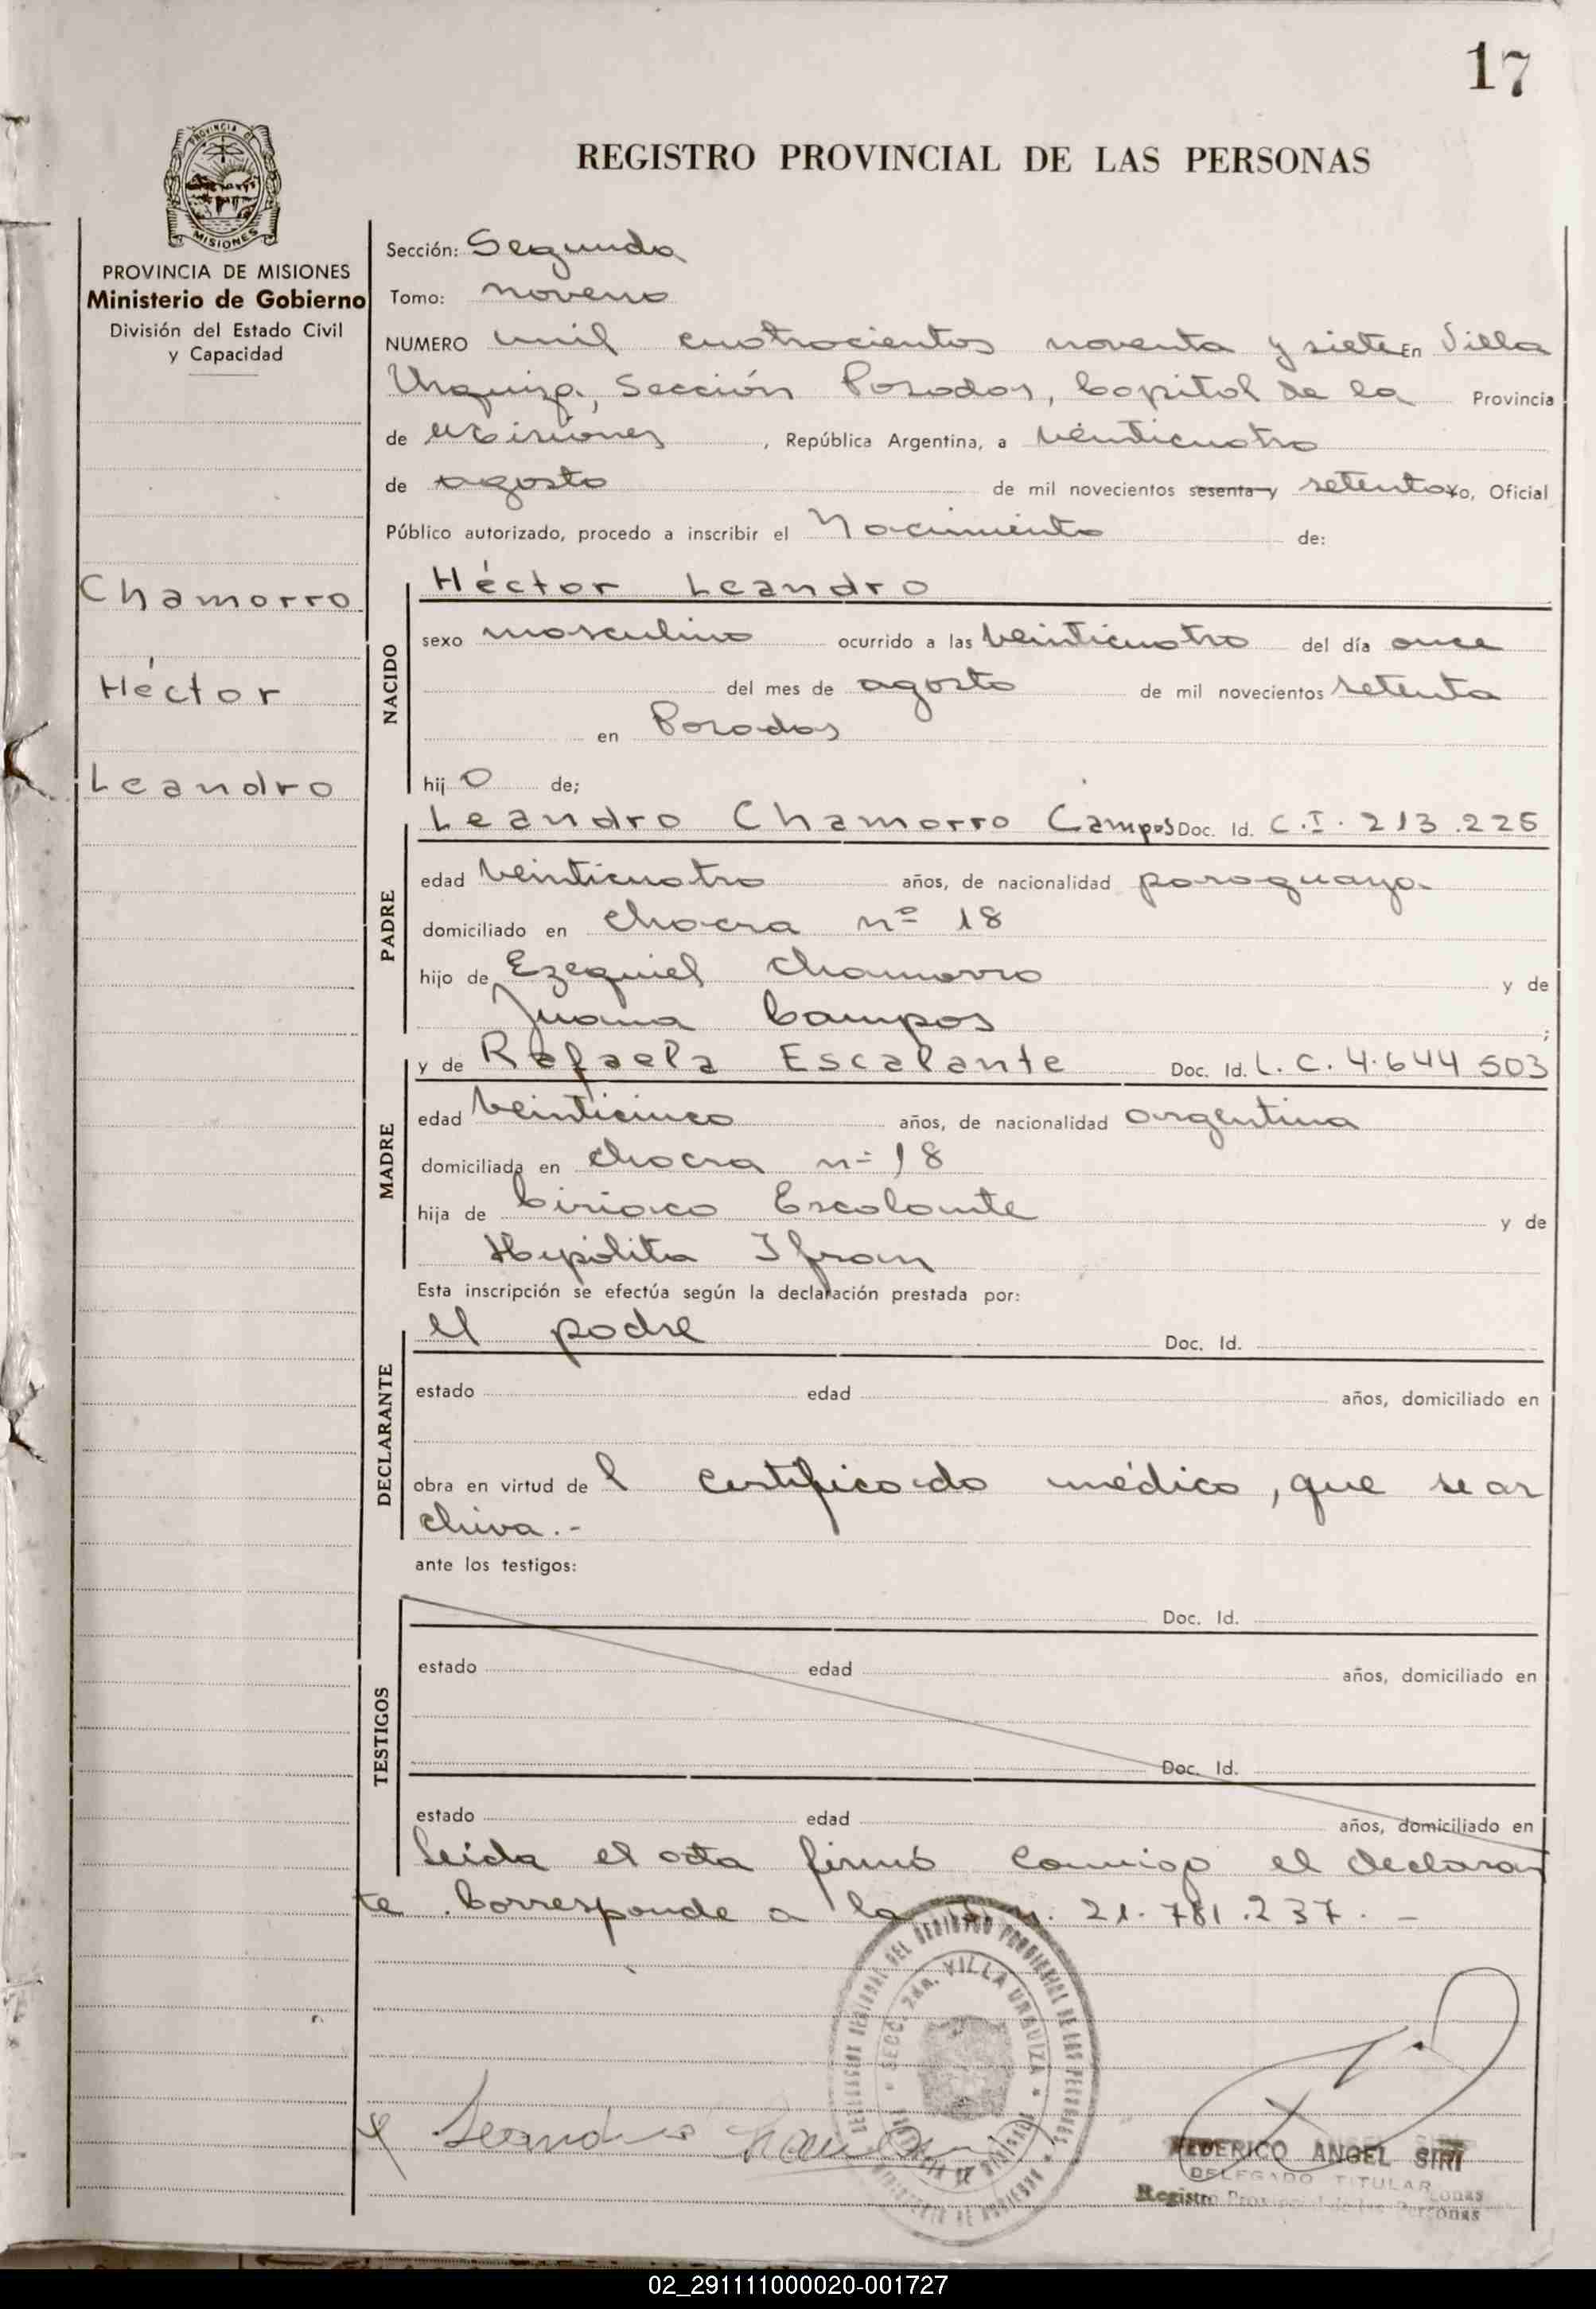 17
REGISTRO PROVINCIAL DE LAS PERSONAS
PROVINCIA DE MISIONES
Ministerio de Gobierno
División del Estado Civil
y Capacidad
Chamorro
Héctor
Leandro
Sección: Segunda
Tomo: noveno
NUMERO mil cuatrocientos noventa y siete En Villa
Urquiza, Sección Posadas, Capital de la Provincia
de Misiones, República Argentina, a veinticuatro
de agosto de mil novecientos sesenta y setenta yo, Oficial
Público autorizado, procedo a inscribir el Nacimiento de:
NACIDO
Héctor Leandro
sexo masculino ocurrido a las veinticuatro del día once
del mes de agosto de mil novecientos setenta
en Posadas
hijo de;
PADRE
Leandro Chamorro Campos Doc. Id. C.I. 213.225
edad veinticuatro años, de nacionalidad paraguaya
domiciliado en chacra nº 18
hijo de Ezequiel Chamorro y de
Juana Campos ;
MADRE
y de Rafaela Escalante Doc. Id. L.C. 4.644 503
edad veinticinco años, de nacionalidad argentina
domiciliada en chacra nº 18
hija de Ciriaco Escalante y de
Hipólita Ifran
Esta inscripción se efectúa según la declaración prestada por:
DECLARANTE
el padre Doc. Id.
estado edad años, domiciliado en
obra en virtud de l certificado médico, que se ar
chiva.-
ante los testigos:
TESTIGOS
Doc. Id.
estado edad años, domiciliado en
Doc. Id.
estado edad años, domiciliado en
Leída el acta firmó conmigo el declaran
te. Corresponde a la 21.781.237. -
SECC. 2da. VILLA URQUIZA
Leandro
FEDERICO ANGEL SIRI
DELEGADO TITULAR
Registro Provincial de las Personas
02_291111000020-001727